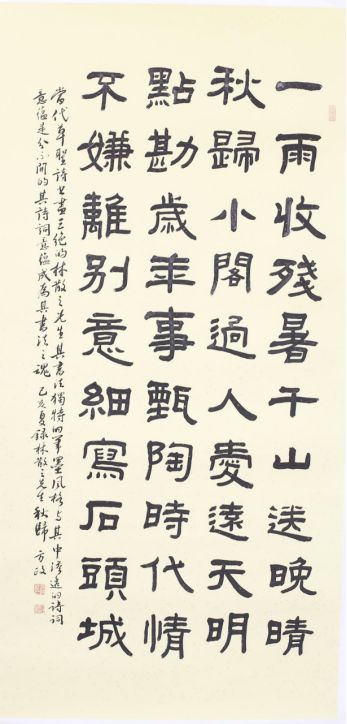 一雨收殘暑千山送晚晴
秋歸小閣過人愛遠天明
點勘歲年事甄陶時代情
不嫌離別意細寫石頭城
當代草聖詩書畫三絕的林散之先生其書法獨特的筆墨風格与其遠的詩詞
意蘊是分不開的其詩詞意蘊成為其書法之魂 己亥夏錄林散之先生秋歸 方政